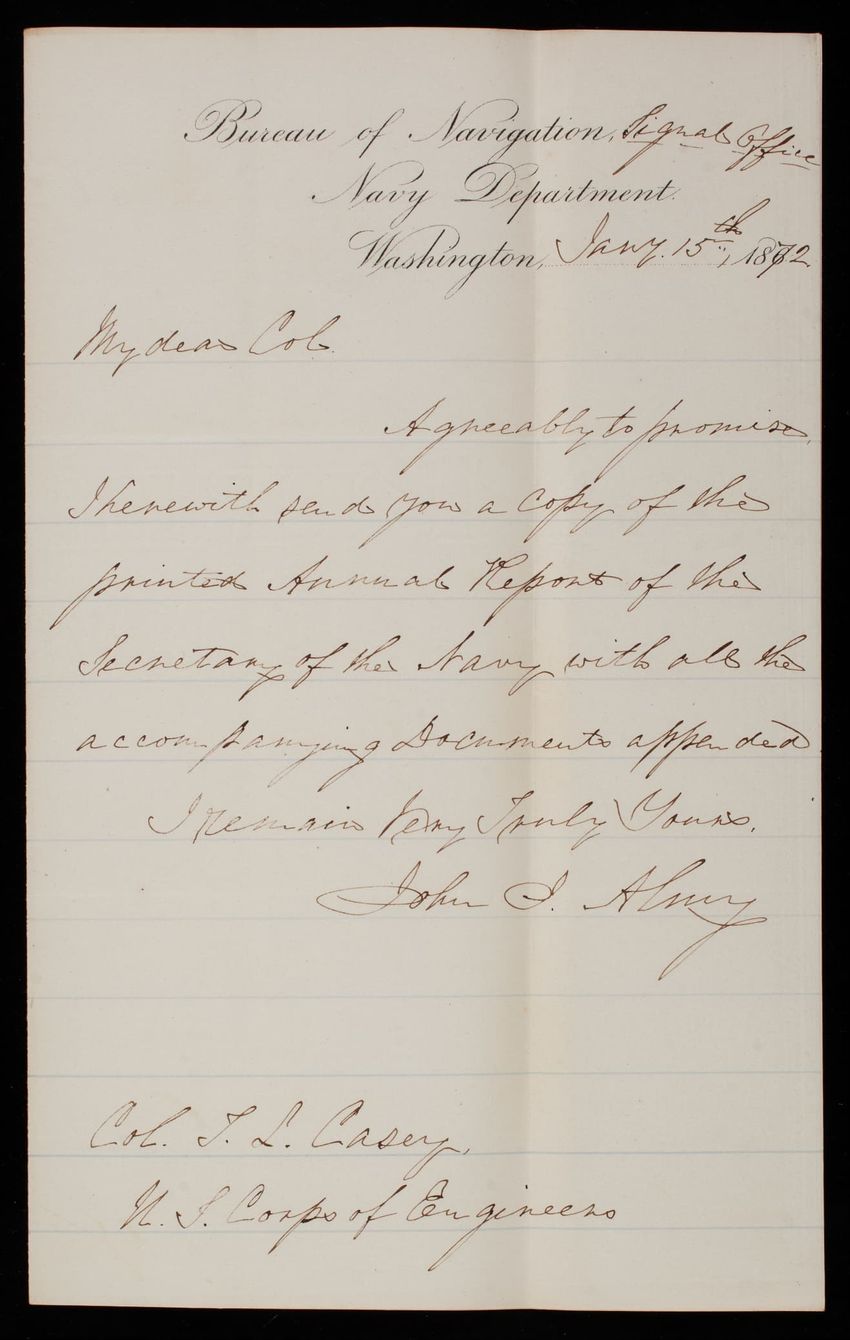 Bureau of Navigation, Signal Office
Navy Department.
Washington, Jany. 15th, 1872.
My dear Col.
Agreeably to promise,
I herewith send you a copy of the
printed Annual Report of the
Secretary of the Navy with all the
accompanying Documents appended
I remain Very Truly Yours,
John J. Almy
Col. T. L. Casey,
U. S. Corps of Engineers